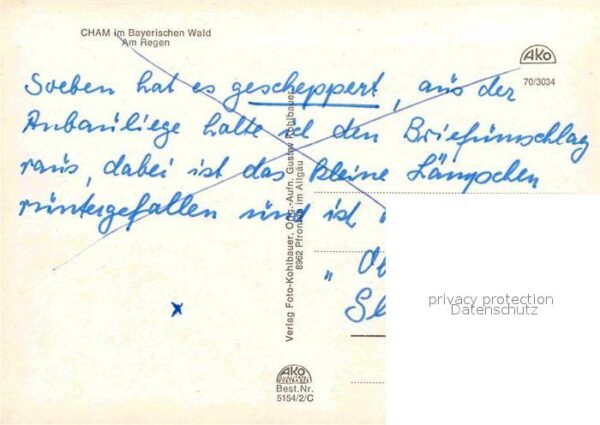 CHAM im Bayerischen Wald
Am Regen
AKO
70/3034
Soeben hat es gescheppert, aus der
Anbauliege holte ich den Briefümschlag
raus, dabei ist das kleine Lämpchen
rüntergefallen ünd ist
"
Verlag Foto-Kohlbauer, Orig.-Aufn. Gustav Kohlbauer
8962 Pfronten im Allgäu
AKO
Best.Nr.
5154/2/C
privacy protection
Datenschutz